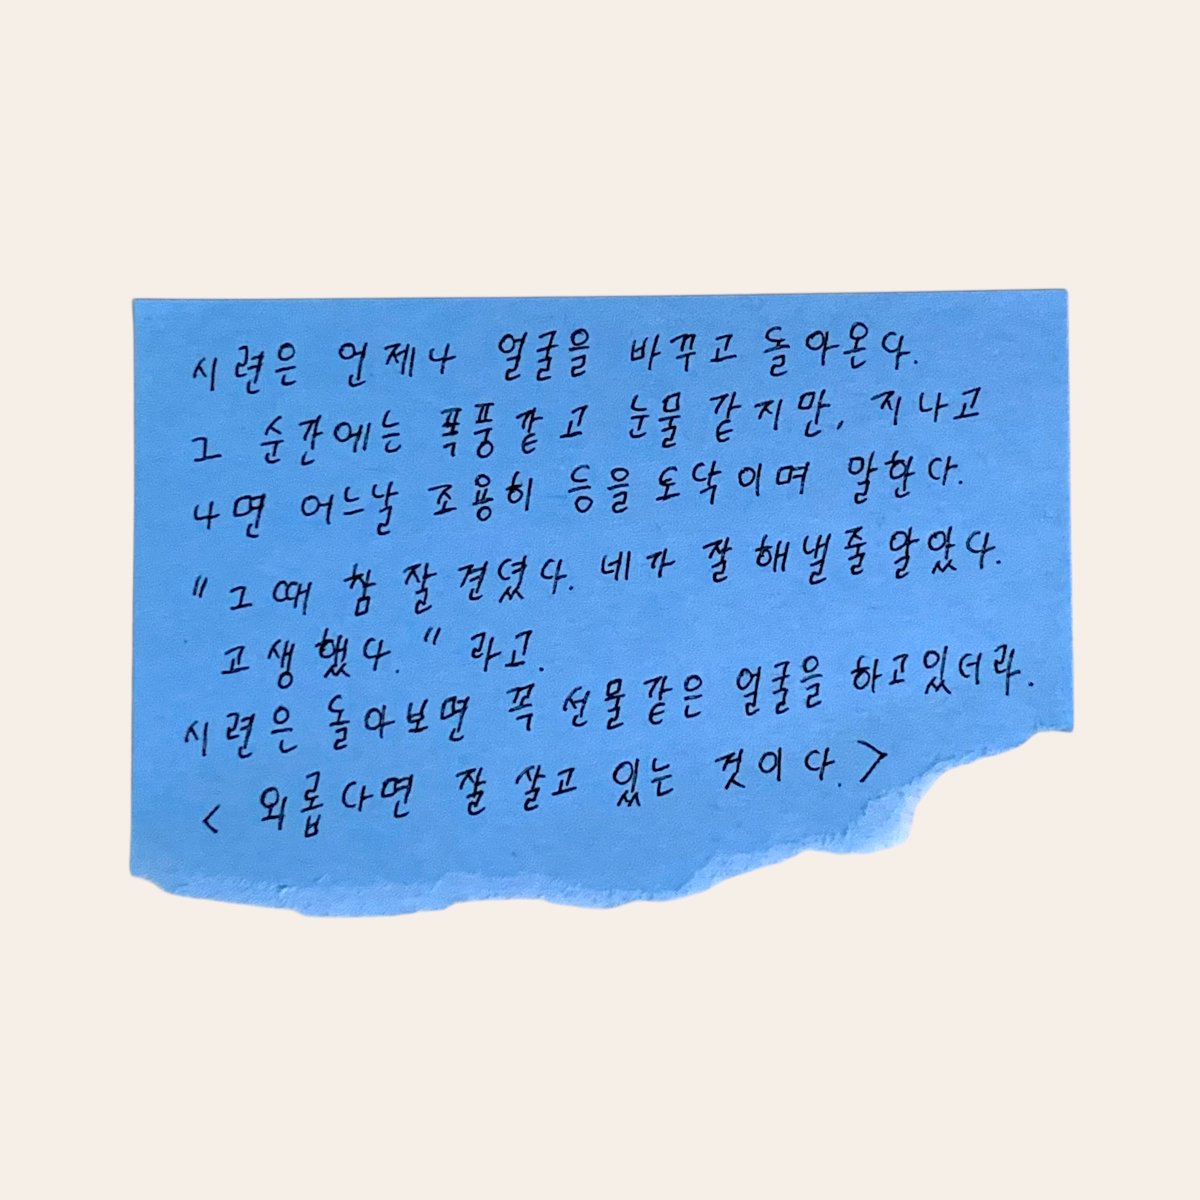 시련은 언제나 얼굴을 바꾸고 돌아온다.
그 순간에는 폭풍같고 눈물 같지만, 지나고
나면 어느날 조용히 등을 도닥이며 말한다.
"그때 참 잘 견뎠다. 네가 잘 해낼줄 알았다.
고생했다." 라고.
시련은 돌아보면 꼭 선물같은 얼굴을 하고있더라.
< 외롭다면 잘 살고 있는 것이다.>